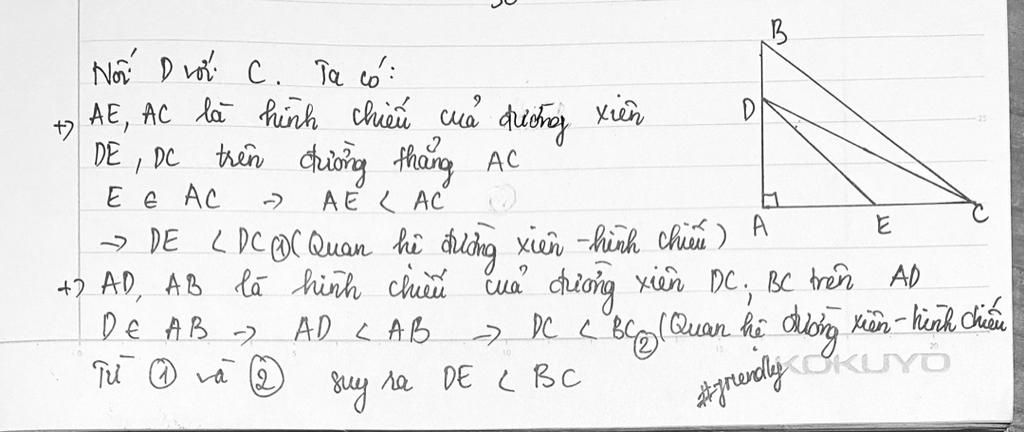 Nối D với C. Ta có:
+> AE, AC là hình chiếu của đường xiên
DE, DC trên đường thẳng AC
E ∈ AC → AE < AC
→ DE < DC ① (Quan hệ đường xiên - hình chiếu)
+> AD, AB là hình chiếu của đường xiên DC, BC trên AD
D ∈ AB → AD < AB → DC < BC ② (Quan hệ đường xiên - hình chiếu
Từ ① và ② suy ra DE < BC
#friendly
KOKUYO
B
D
A
E
C